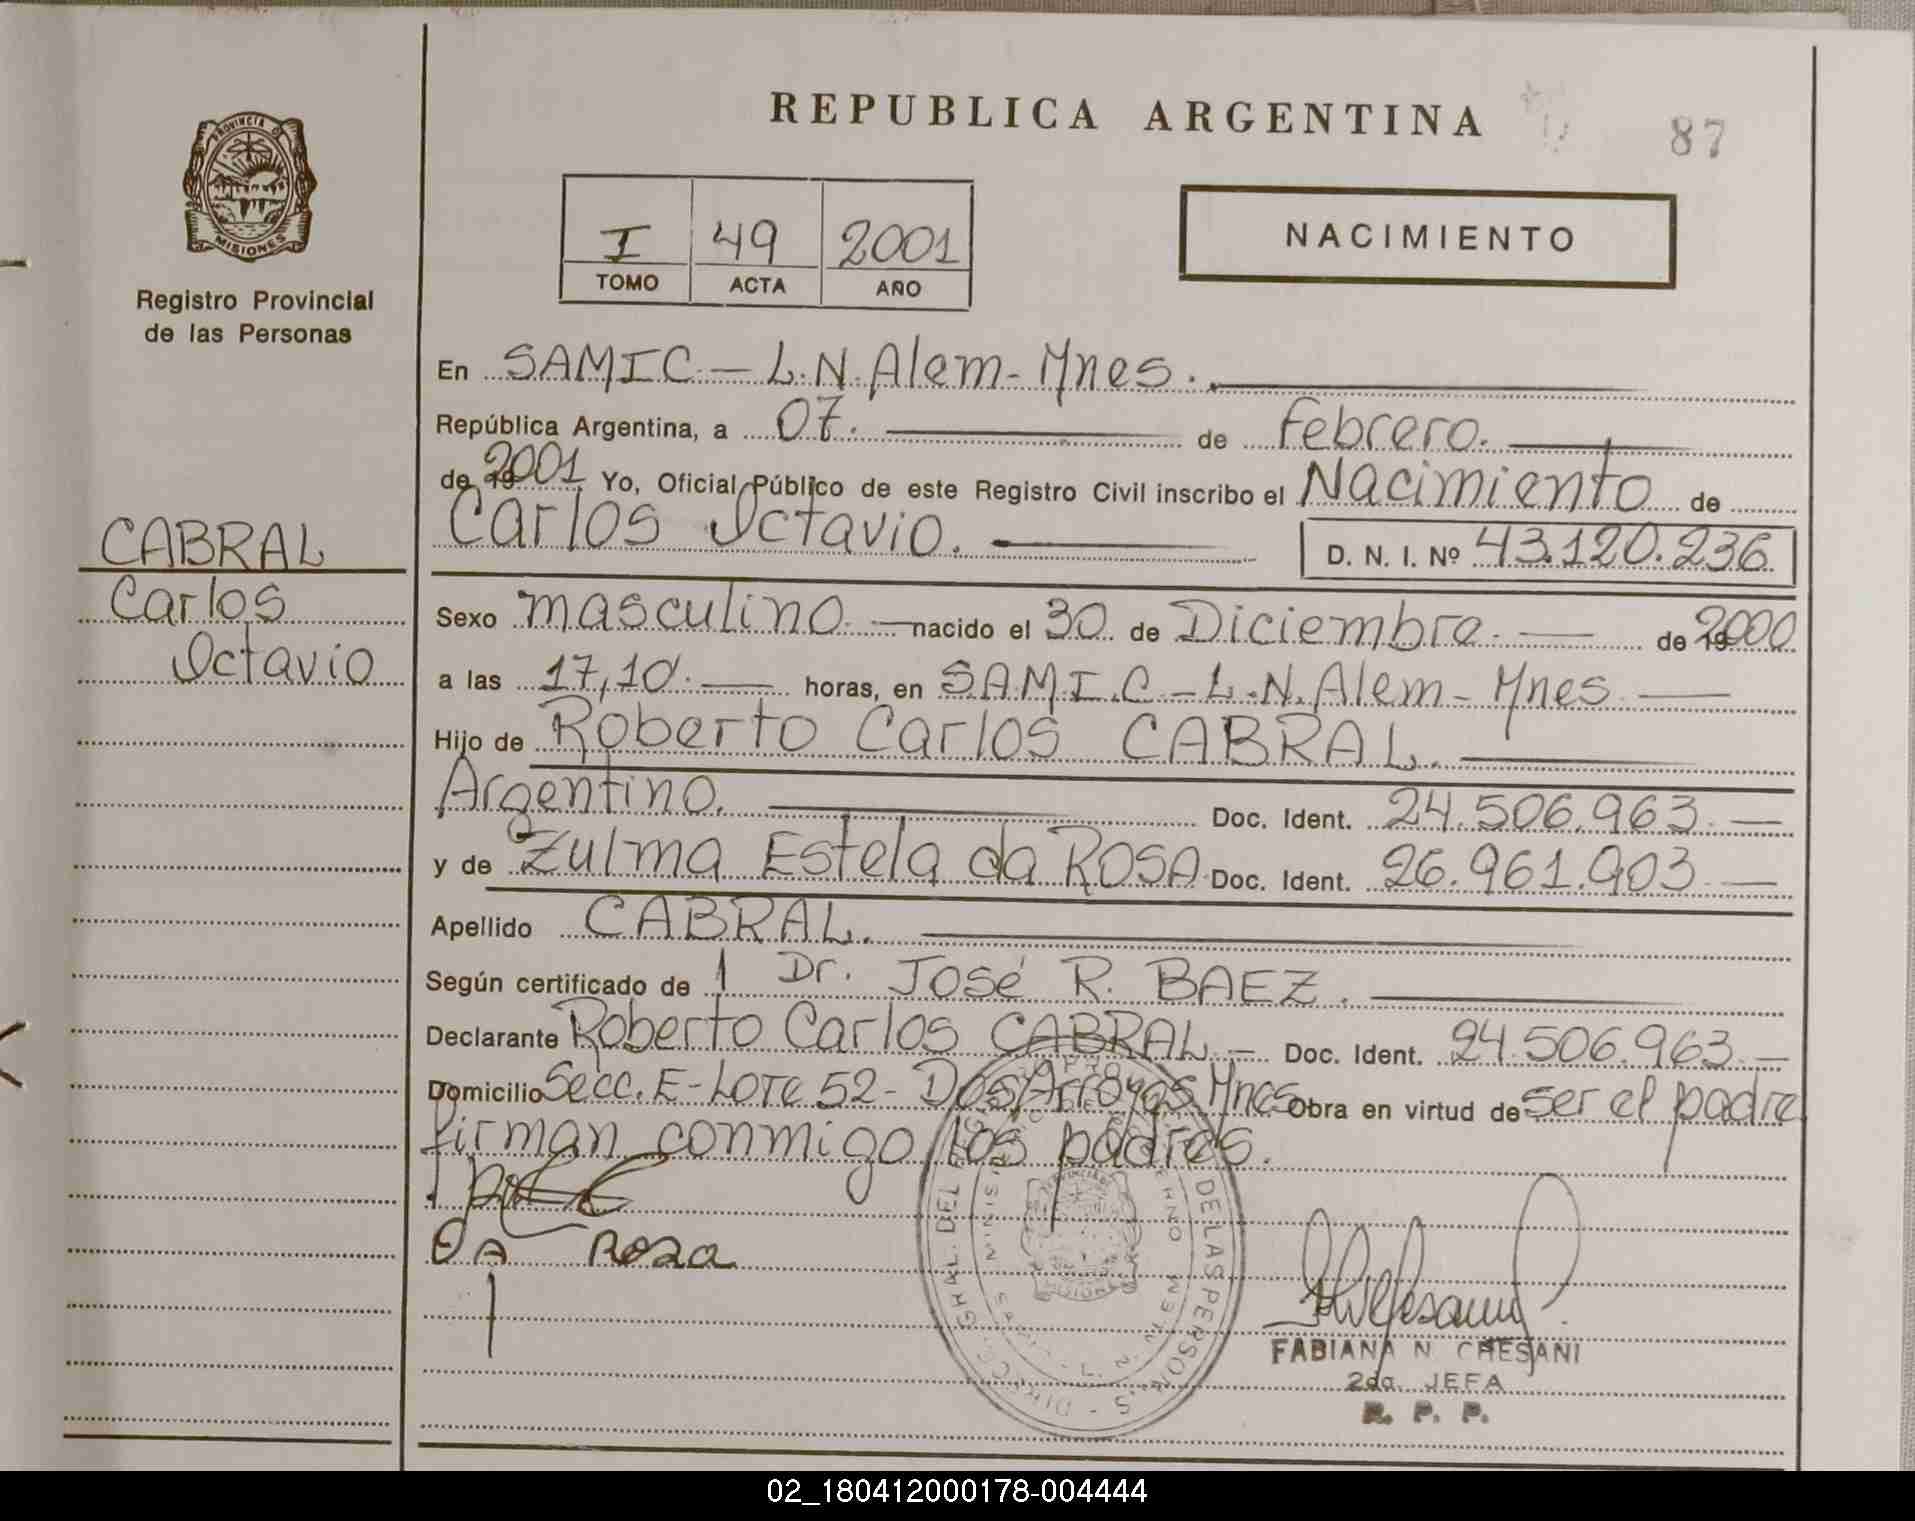 REPUBLICA ARGENTINA
87
PROVINCIA DE
MISIONES
Registro Provincial
de las Personas
I 49 2001
TOMO ACTA AÑO
NACIMIENTO
En SAMIC - L.N. Alem - Mnes.
República Argentina, a 07. de Febrero.
de 19 2001 Yo, Oficial Público de este Registro Civil inscribo el Nacimiento de
Carlos Octavio. D. N. I. Nº 43.120.236
CABRAL
Carlos
Octavio
Sexo masculino. nacido el 30 de Diciembre. de 19 2000
a las 17,10. horas, en S.A.M.I.C - L.N. Alem - Mnes
Hijo de Roberto Carlos CABRAL.
Argentino. Doc. Ident. 24.506.963.
y de Zulma Estela da ROSA Doc. Ident. 26.961.903
Apellido CABRAL.
Según certificado de Dr. José R. BAEZ.
Declarante Roberto Carlos CABRAL - Doc. Ident. 24.506.963.
Domicilio Secc. E - Lote 52 - Dos Arroyos Mnes Obra en virtud de ser el padre
firman conmigo los padres.
DA ROSA
DE LAS PERSONAS
FABIANA N CHESANI
2da. JEFA
R. P. P.
02_180412000178-004444